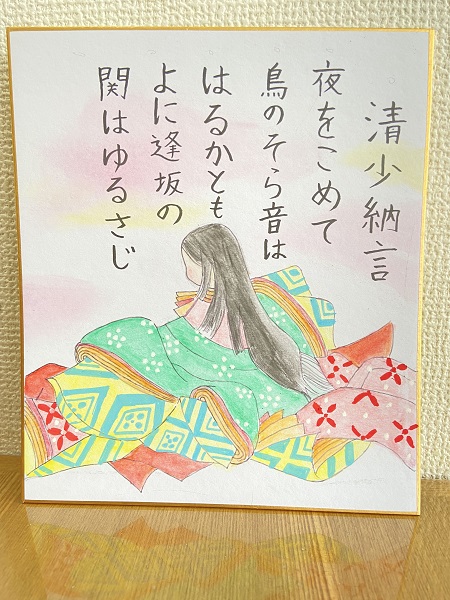 清少納言
夜をこめて
鳥のそら音は
はるかとも
よに逢坂の
関はゆるさじ